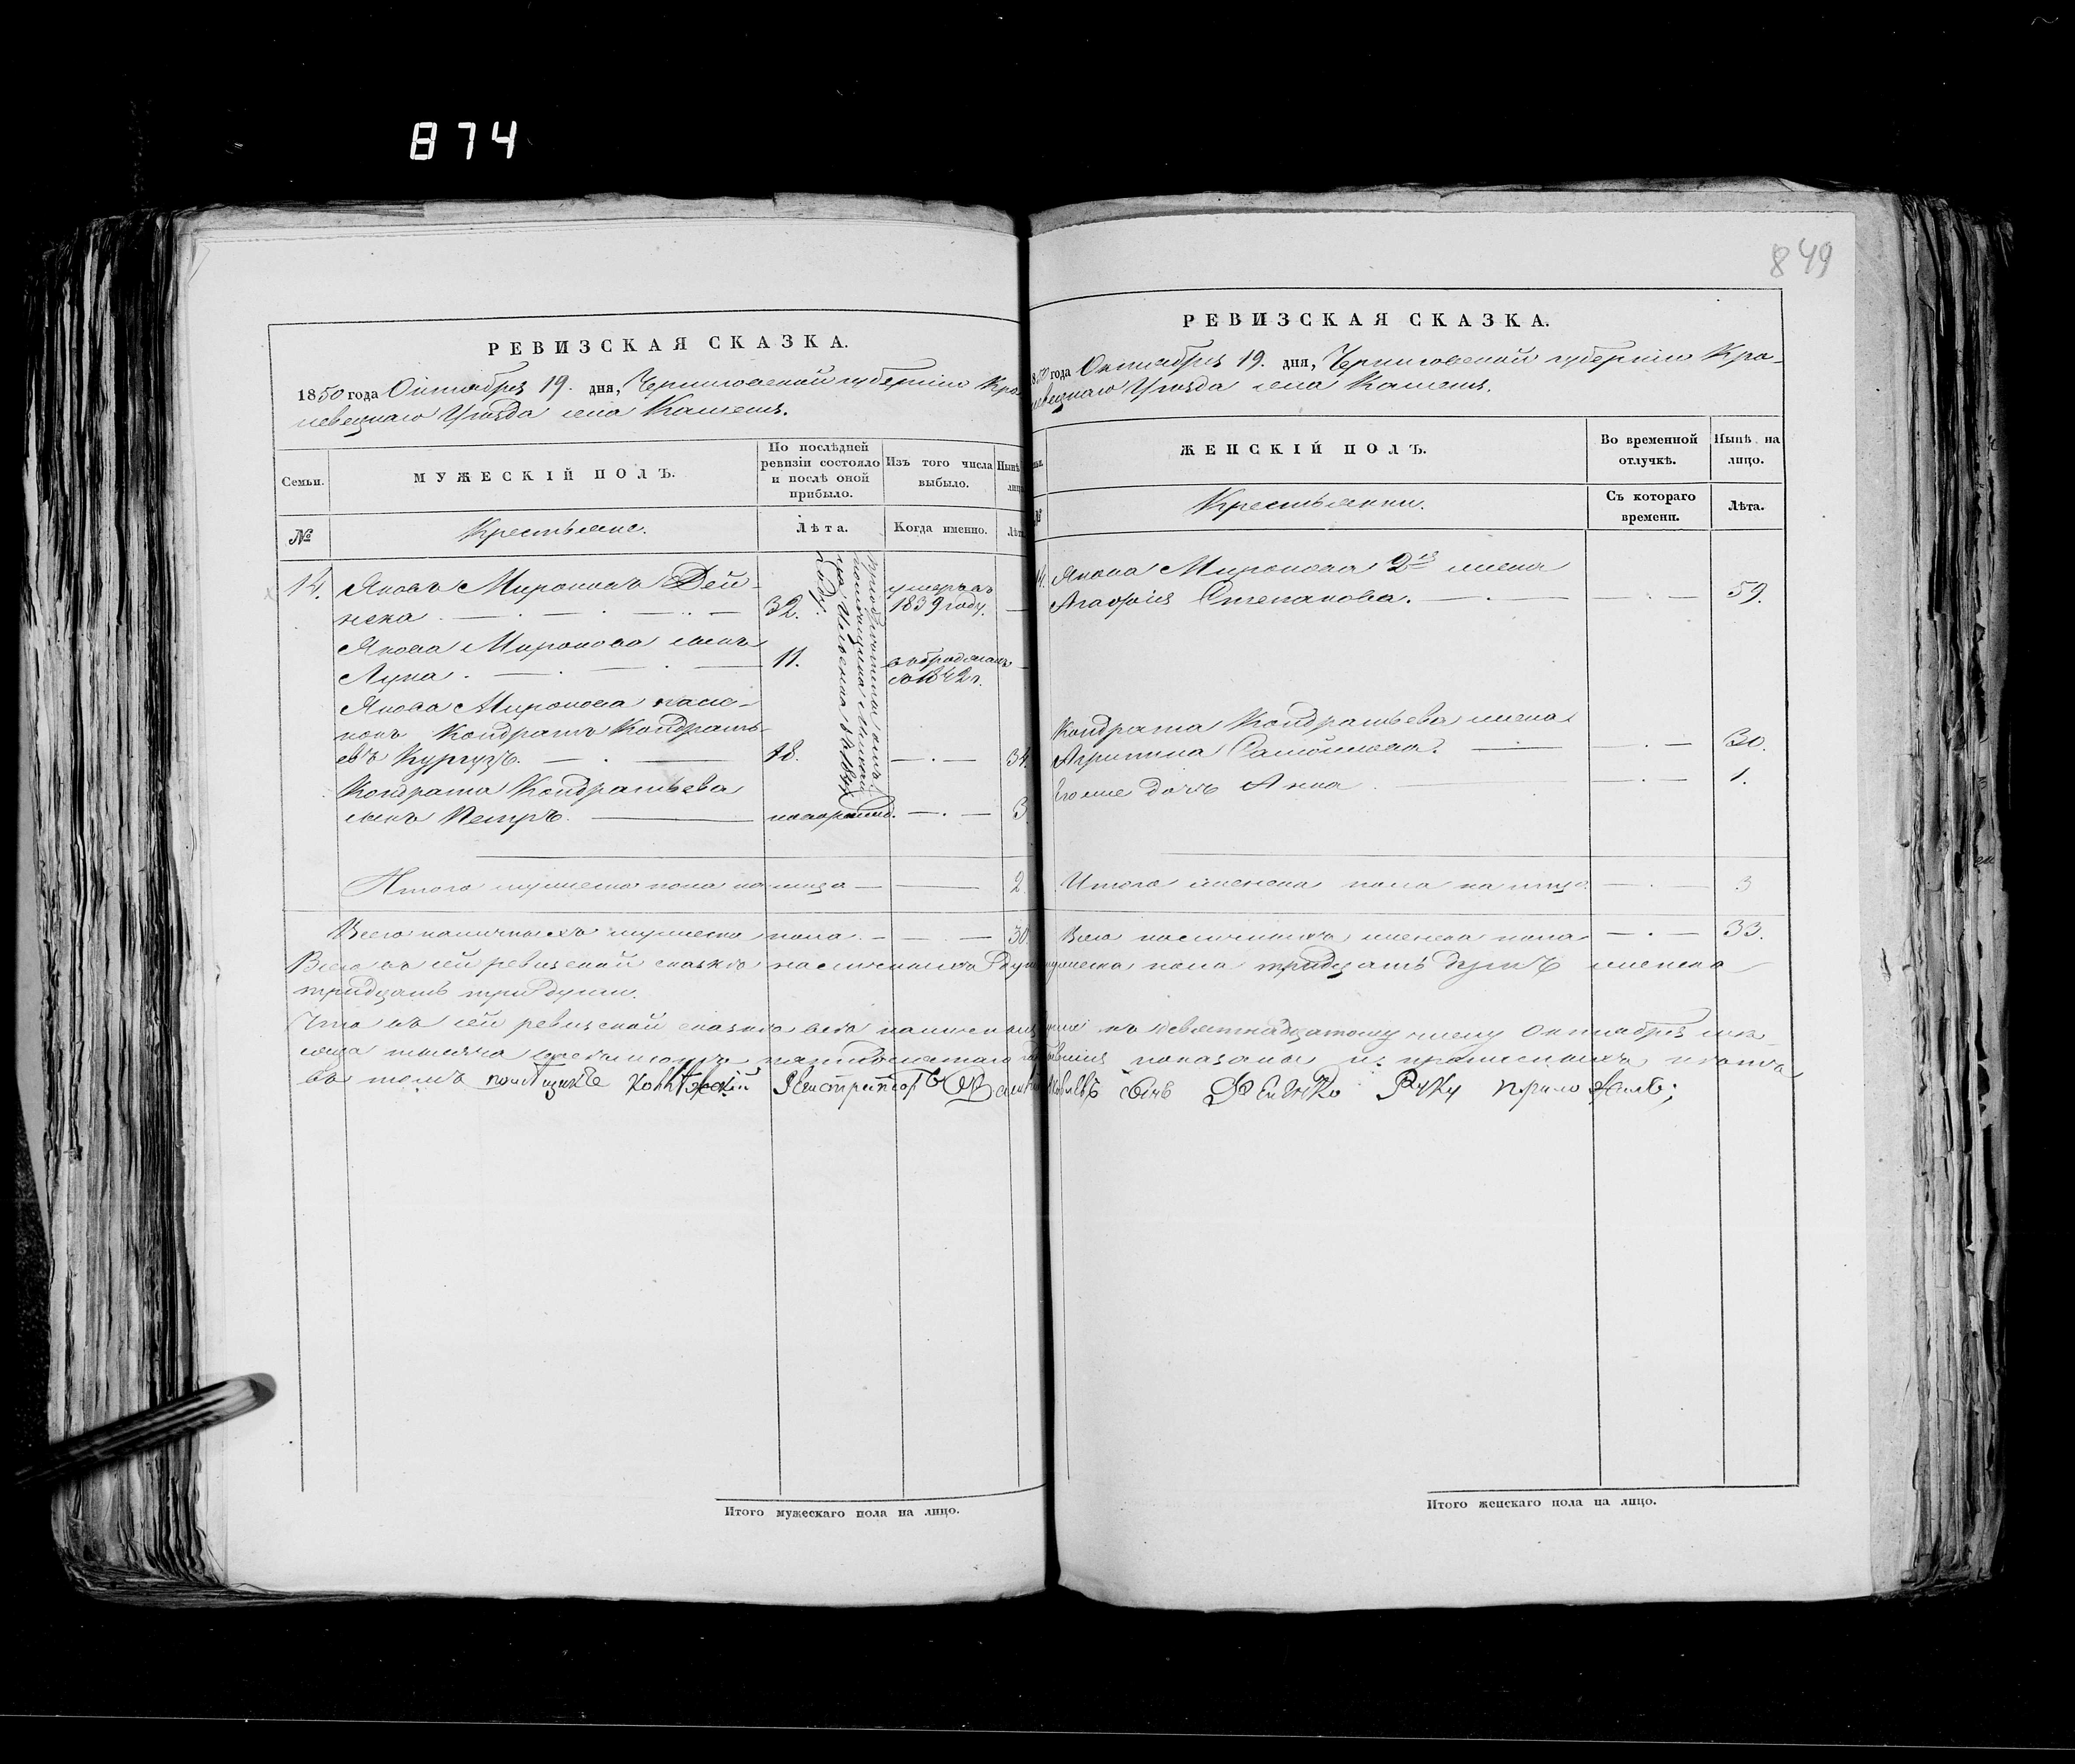 874
849
РЕВИЗСКАЯ СКАЗКА.
1850 года Октября 19. дня, Черниговской губерніи Кро
левецкаго Уѣзда села
Семьи.
МУЖЕСКІЙ ПОЛЪ.
По послѣдней ревизіи состояло и послѣ оной прибыло.
Изъ того числа выбыло.
Нынѣ
лицо
№
Крестьяне.
Лѣта.
Когда именно.
Лѣта
14. Яковъ Мироновъ Дей-
нека 32. умеръ въ 1839 году.
Якова Миронова сынъ
Лука. 11.
Якова Миронова пасы-
нокъ Кондратъ Кондрать-
евъ Кургузъ. 18. 34.
Кондрата Кондратьева
сынъ Петръ. новорожд. 3.
Итого мужеска пола на лицо 2.
Всего наличныхъ мужеска пола 30.
РЕВИЗСКАЯ СКАЗКА.
1850 года Октября 19. дня, Черниговской губерніи Кро-
левецкаго Уѣзда села
ЖЕНСКІЙ ПОЛЪ.
Во временной отлучкѣ.
Нынѣ на лицо.
№
Крестьянки.
Съ котораго времени.
Лѣта.
14. Якова Миронова 2я жена
Агафія Степанова. 59.
Кондрата Кондратьева жена
Агрипина Самойлова. 30.
Его же дочь Анна 1.
Итого женска пола на лицо 3
Всего наличныхъ женска пола 33.
Всего въ сей ревизской сказкѣ наличныхъ душъ мужеска пола тридцать душъ женска
тридцать три души.
Что въ сей ревизской сказкѣ всѣ наличныя души къ девятнадцатому числу Октября мѣ-
сяца тысяча восемьсотъ пятидесятаго показаны и прописныхъ нѣтъ
въ томъ помѣщикъ Регистраторъ сынъ руку приложилъ;
Итого мужескаго пола на лицо.
Итого женскаго пола на лицо.